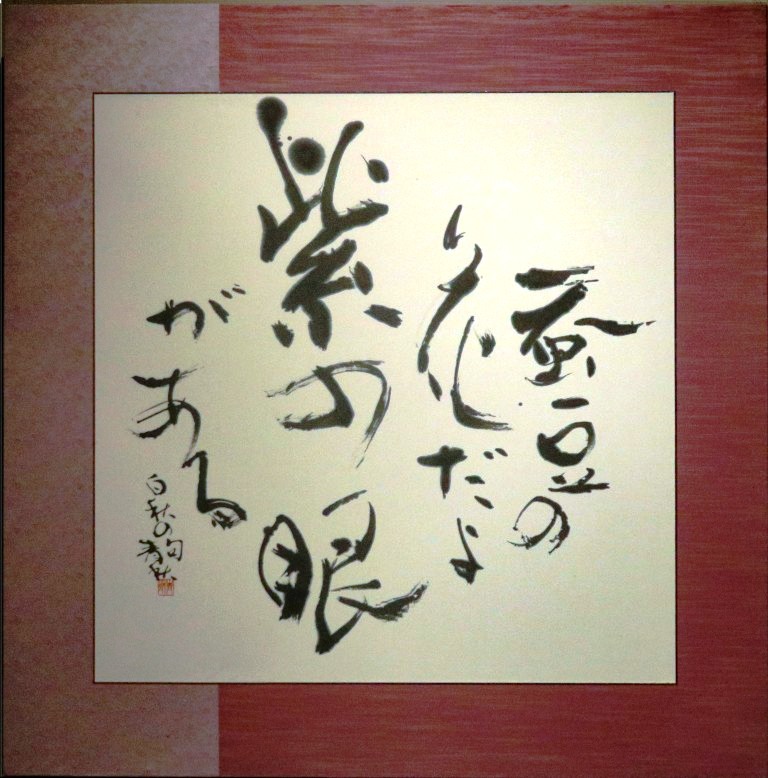 蚕豆の
花だよ
紫の眼
がある
白秋の句